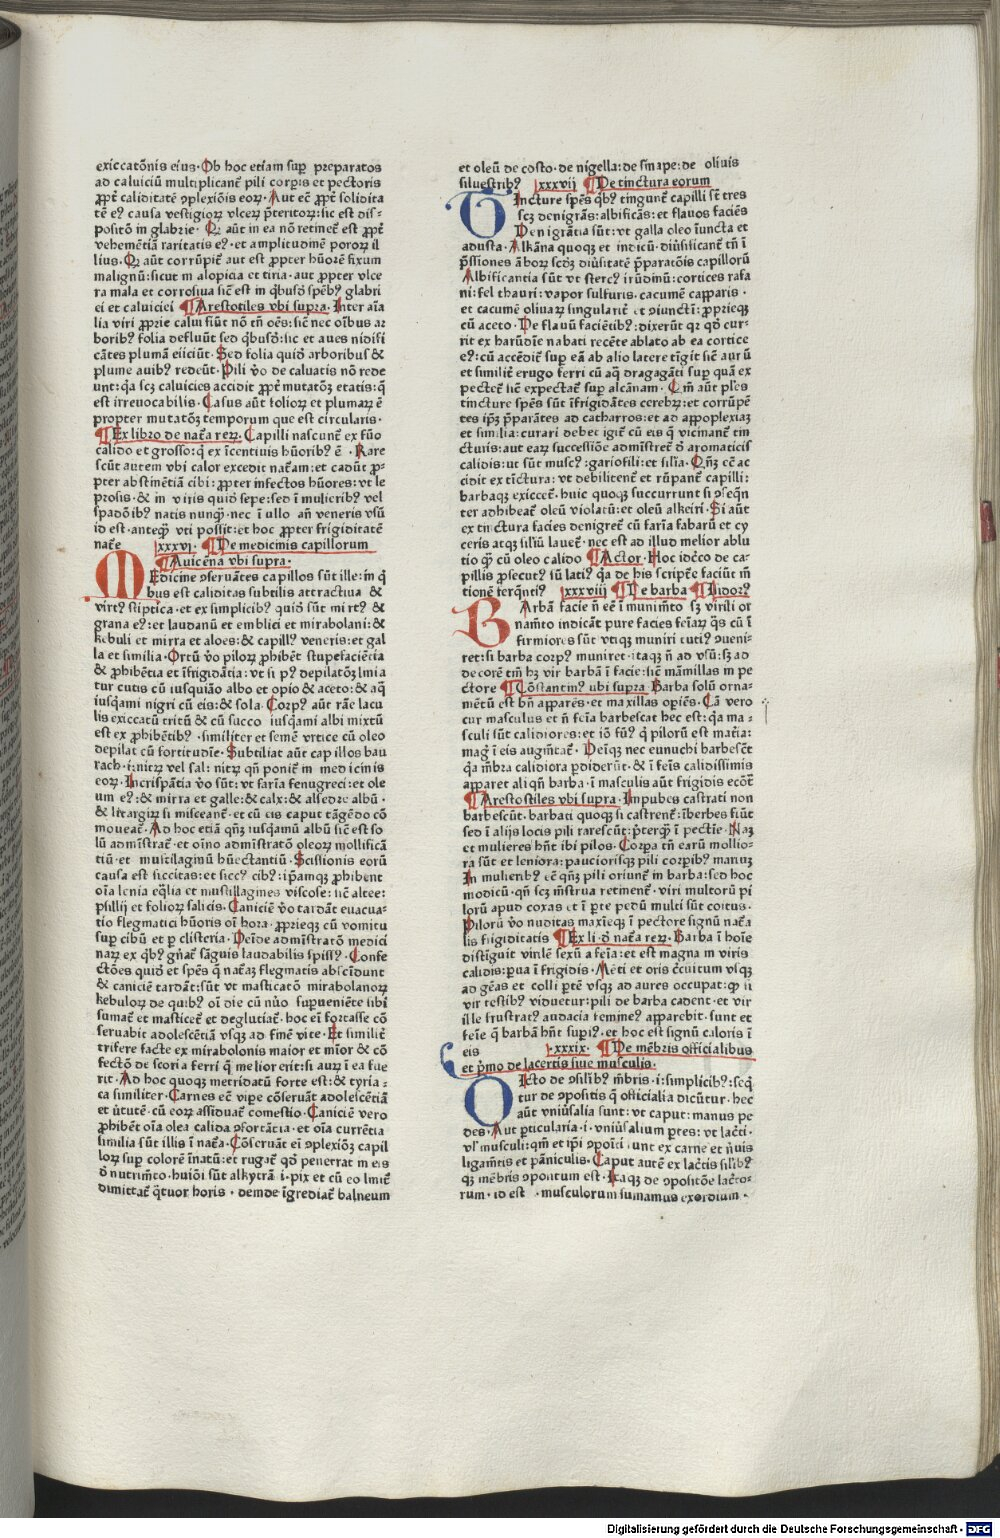 exiccatõnis eius· Ob hoc etiam sup preparatos
ad caluiciũ multiplicant̃ pili corpis et pectoris
ppt̃ caliditatẽ ꝯplexiõis eoꝝ· Aut eñ ppt̃ solidita
tẽ eꝰ causa vestigioꝝ vlceꝝ p̃teritoꝝ: sic est dis⸗
positõ in glabrie· Qꝛ aũt in ea nõ retinet̃ est ppt̃
vehemẽtiã raritatis eꝰ· et amplitudinẽ poroꝝ il
lius· Qꝛ aũt corrũpit̃ aut est ppter hũorẽ fixum
malignũ: sicut in alopicia et tiria· aut ppter vlce
ra mala et corrosiua sic̃ est in q̃busdã spẽbꝰ glabri
ciei et caluiciei ¶ Arestotiles vbi supra· Inter aĩa
lia viri pprie calui fiũt nõ tñ oẽs: sic̃ nec oĩbus ar
boribꝰ folia defluũt sed q̃busdã: sic et aues nidifi
cãtes plumã eiiciũt· Sed folia quidẽ arboribus &
plume auibꝰ redeũt· Pili ṽo de caluatis nõ rede
unt: q̃a scꝫ caluicies accidit ppt̃ mutatõꝫ etatis: q̃
est irreuocabilis· Casus aũt folioꝝ et plumaꝝ ẽ
propter mutatõꝫ temporum que est circularis·
¶ Ex libro de nat̃a reꝝ· Capilli nascunt̃ ex fũo
calido et grosso: q̃ ex ĩcentiuis hũoribꝰ ẽ · Rare
scũt autem vbi calor excedit nat̃am: et cadũt p⸗
pter abstinẽtiã cibi: ppter infectos hũores: vt le
prosis· & in viris quidẽ sepe: sed ĩ mulieribꝰ vel
spadõibꝰ natis nunq̃· nec ĩ ullo añ veneris vsũ
id est· anteq̃ vti possit: et hoc ppter frigiditatẽ
nat̃e |xxxvj· ¶ De medicinis capillorum
¶ Auicẽna vbi supra·
MEdicine ꝯseruãtes capillos sũt ille: in q̃
bus est caliditas subtilis attractiua &
virtꝰ stiptica· et ex simplicibꝰ quidẽ sũt mirtꝰ &
grana eꝰ: et laudanũ et emblici et mirabolani: &
kebuli et mirra et aloes: & capillꝰ veneris: et gal
la et similia· Ortũ ṽo piloꝝ phibẽt stupefaciẽtia
& phibẽtia et ĩfrigidãtia: vt si pꝰ depilatõꝫ linia
tur cutis cũ iusquião albo et opio & aceto: & aq̃
iusq̃ami nigri cũ eis: & sola· Corpꝰ aut rãe lacu
lis exiccatũ tritũ & cũ succo iusq̃ami albi mixtũ
est ex phibẽtibꝰ· similiter et semẽ vrtice cũ oleo
depilat cũ fortitudĩe· Subtiliat aũt capillos bau
rach· i: nitꝝ vel sal: nitꝝ qñ ponit̃ in medicinis
eoꝝ· Incrispãtia ṽo sũt: vt farĩa fenugreci: et ole
um eꝰ: & mirra et galle: & calx: & alsedꝛe albũ·
& litargiꝝ si misceant̃· et cũ eis caput tãgẽdo cõ
moueat̃· Ad hoc etiã qñꝫ iusq̃amũ albũ sic̃ est so
lũ adm̃istrat̃· et oĩno adm̃istratõ oleoꝝ mollificã
tiũ· et mustilaginũ hũectantiũ· Scissionis eorũ
causa est siccitas: et siccꝰ cibꝰ: ip̃amqꝫ phibent
oĩa lenia eq̃lia et mustillagines viscose: sic̃ altee:
psillij et folioꝝ salicis· Caniciẽ ṽo tardãt euacua⸗
tio flegmatici hũoris oĩ hora· pprieqꝫ cũ vomitu
sup cibũ et p clisteria· Deĩde adm̃istratõ medici
naꝝ ex q̃bꝰ gñat̃ sãguis laudabilis spissꝰ· Confe
ctões quidẽ et spẽs q̃ nat̃aꝫ flegmatis abscidunt
& caniciẽ tardãt: sũt vt masticatõ mirabolanoꝝ
kebuloꝝ de quibꝰ oĩ die cũ nũo supueniẽte sibi
sumat̃ et masticet̃ et deglutiat̃· hoc eĩ fortasse cõ
seruabit adolescẽtiã vsqꝫ ad finẽ vite· Et similit̃
trifere facte ex mirabolonis maior et mĩor & cõ
fectõ de scoria ferri q̃ melior erit: si auꝝ ĩ ea fue
rit· Ad hoc quoqꝫ metridatũ forte est: & tyria⸗
ca similiter· Carnes eñ vipe cõseruãt adolescẽtiã
et ṽtutẽ· cũ eoꝝ assiduat̃ comestio· Caniciẽ vero
phibẽt oĩa olea calida ꝯfortãtia· et oĩa currẽtia
similia sũt illis ĩ nat̃a· Cõseruãt eĩ ꝯplexiõꝫ capil
loꝝ sup colorẽ ĩnatũ: et rugat̃ qđ penetrat in eis
đ nutrim̃to· huiõi sũt alkytrã· i· pix et cũ eo linit̃
dimittat̃ q̃tuor horis· deinde ĩgrediat̃ balneum
et oleũ de costo· de nigella: de sinape: de oliuis
siluestribꝰ |xxxvij ¶ De tinctura eorum
TIncture spẽs q̃bꝰ tingunt̃ capilli st̃ tres
scꝫ denigrãs: albificãs: et flauos faciẽs
Denigrãtia sũt: vt galla oleo ĩuncta et
adusta· Alkãna quoqꝫ et indicũ· diũsificant̃ tñ ĩ
p̃ssiones ãboꝝ scđꝫ diũsitatẽ p̃paratõis capillorũ
Albificantia sũt vt stercꝰ irũdinũ: cortices rafa
ni: fel thauri: vapor sulfuris· cacumẽ capparis·
et cacumẽ oliuaꝝ singularit̃ et ꝯiunctĩ: pprieqꝫ
cũ aceto· De flauũ faciẽtibꝰ: dixerũt qꝛ qđ cur⸗
rit ex harũdĩe nabati recẽte ablato ab ea cortice
eꝰ: cũ accẽdit̃ sup eã ab alio latere tĩgit sic̃ aurũ
et similit̃ erugo ferri cũ aq̃ dragagãti sup quã ex
pectet̃ sic̃ expectat̃ sup alcãnam· Cm̃ aũt plẽs
tincture spẽs sũt ĩfrigidãtes cerebꝝ: et corrũpẽ
tes ip̃ꝫ p̃parãtes ad catharros: et ad appoplexiaꝫ
et similia: curari debet igit̃ cũ eis q̃ vicinant̃ tin
cturis: aut eaꝝ successiõe adm̃istrent̃ đ aromaticis
calidis: vt sũt muscꝰ: gariofili: et sil̃ia· Qñꝫ eẽ ac
cidit ex tĩctura: vt debilitent̃ et rũpant̃ capilli:
barbaqꝫ exiccet̃· huic quoqꝫ succurrunt si ꝯseqñ
ter adhibeat̃ oleũ violatũ: et oleũ alkeiri· Si aũt
ex tinctura facies denigret̃ cũ farĩa fabarũ et cy
ceris atqꝫ siliũ lauet̃· nec est ad illud melior ablu
tio q̃ cũ oleo calido ¶ Actor· Hoc idẽco de ca⸗
pillis psecutꝰ sũ latiꝰ q̃a de his scriptẽ faciũt m̃
tionẽ ferq̃ntiꝰ |xxxviij ¶ De barba ¶ Isidorꝰ
BArbã facie ñ eẽ ĩ munim̃to sꝫ virsli or
nam̃to indicãt pure facies feĩaꝝ q̃s cũ ĩ
firmiores sũt vtiqꝫ muniri tutiꝰ ꝯueni⸗
ret: si barba corpꝰ muniret· itaqꝫ ñ ad vsũ: sꝫ ad
decorẽ tm̃ hꝫ vir barbã ĩ facie: sic̃ mãmillas in pe
ctore ¶ Cõstantinꝰ ubi supra Barba solũ orna⸗
mẽtũ est bñ apparẽs· et maxillas opiẽs· Cã vero
cur masculus et ñ feĩa barbescat hec est: q̃a ma⸗
sculi sũt calidiores: et iõ fũꝰ q̃ pilorũ est mat̃ia:
magꝭ ĩ eis augm̃tat̃· Deĩqꝫ nec eunuchi barbescẽt
q̃a m̃bra calidiora pdiderũt· & ĩ feĩs calidissimis
apparet aliqñ barba· ĩ masculis aũt frigidis ecõt̃
¶ Arestostiles vbi supra· Impubes castrati non
barbescũt· barbati quoqꝫ si castrent̃: ĩberbes fiũt
sed ĩ alijs locis pili rarescũt: p̃terq̃ ĩ pectie· Naꝫ
et mulieres hñt ibi pilos· Corpa tñ earũ mollio⸗
ra sũt et leniora: pauciorisqꝫ pili corpibꝰ manꝫ
In mulieribꝰ eĩ qñꝫ pili oriunt̃ in barba: sed hoc
modicũ· qñ scꝫ m̃strua retinent̃· viri multorũ pi
lorũ apud coxas et ĩ pte pedũ multi sũt coitus·
Pilorũ ṽo nuditas maxieqꝫ ĩ pectore signũ nat̃a
lis frigiditatis ¶ Ex li· đ nat̃a reꝝ· Barba ĩ hoĩe
distĩguit virilẽ sexũ a feĩa: et est magna in viris
calidis: pua ĩ frigidis· Meti et oris c̃cuitum vsqꝫ
ad gẽas et colli ptẽ vsqꝫ ad aures occupat: qđ si
vir testibꝰ viduetur: pili de barba cadent· et vir
ille frustratꝰ audacia feminẽꝰ apparebit· sunt et
feĩe q̃ barbã hñt supiꝰ· et hoc est signũ caloris ĩ
eis |xxxix· ¶ De mẽbris officialibus
et p̃mo de lacertis siue musculis·
DIcto de ꝯsilibꝰ m̃bris· i: simplicibꝰ: seq̃
tur de ꝯpositis q̃ officialia dicũtur· hec
aũt vniũsalia sunt: vt caput: manus pe
des· Aut pticularia· i· vniũsalium ptes: vt lac̃ti·
vl̃ musculi: qm̃ et ip̃i ꝯpoĩti sunt ex carne et ñuis
ligam̃tis et pãniculis· Caput autẽ ex lac̃tis sil̃ibꝰ
qꝫ mẽbris ꝯpositum est· Itaqꝫ de ꝯpositõe lac̃to⸗
rum· id est musculorum sumamus exordium·
Digitalisierung gefördert durch die Deutsche Forschungsgemeinschaft · DFG